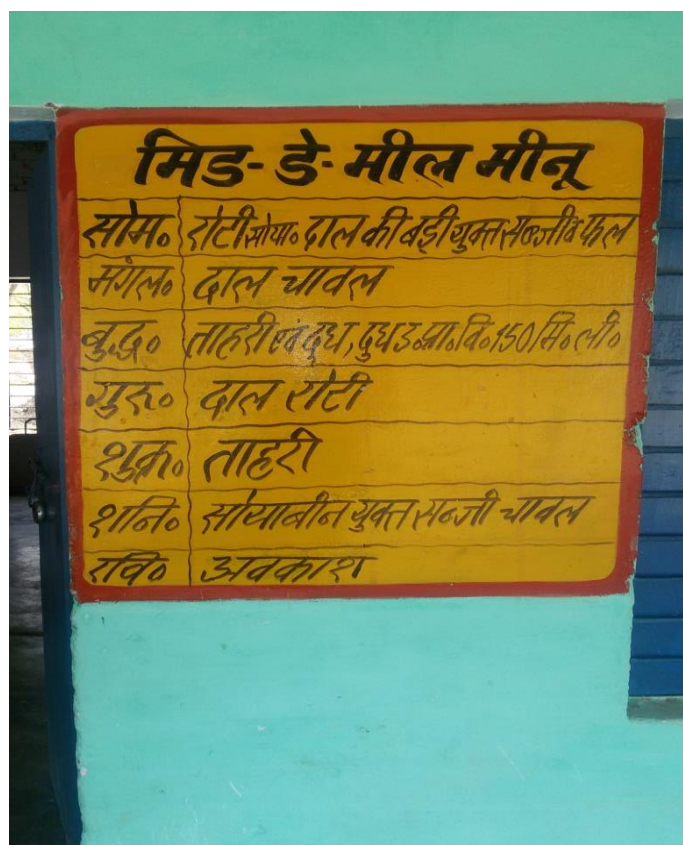 मिड-डे-मील मीनू
सोम० रोटी सोया० दाल की बड़ी युक्त सब्जी व फल
मंगल० दाल चावल
बुद्ध० ताहरी एवं दूध, दुध उ.प्रा.वि.150 मि०ली०
गुरू० दाल रोटी
शुक्र० ताहरी
शनि० सोयाबीन युक्त सब्जी चावल
रवि० अवकाश